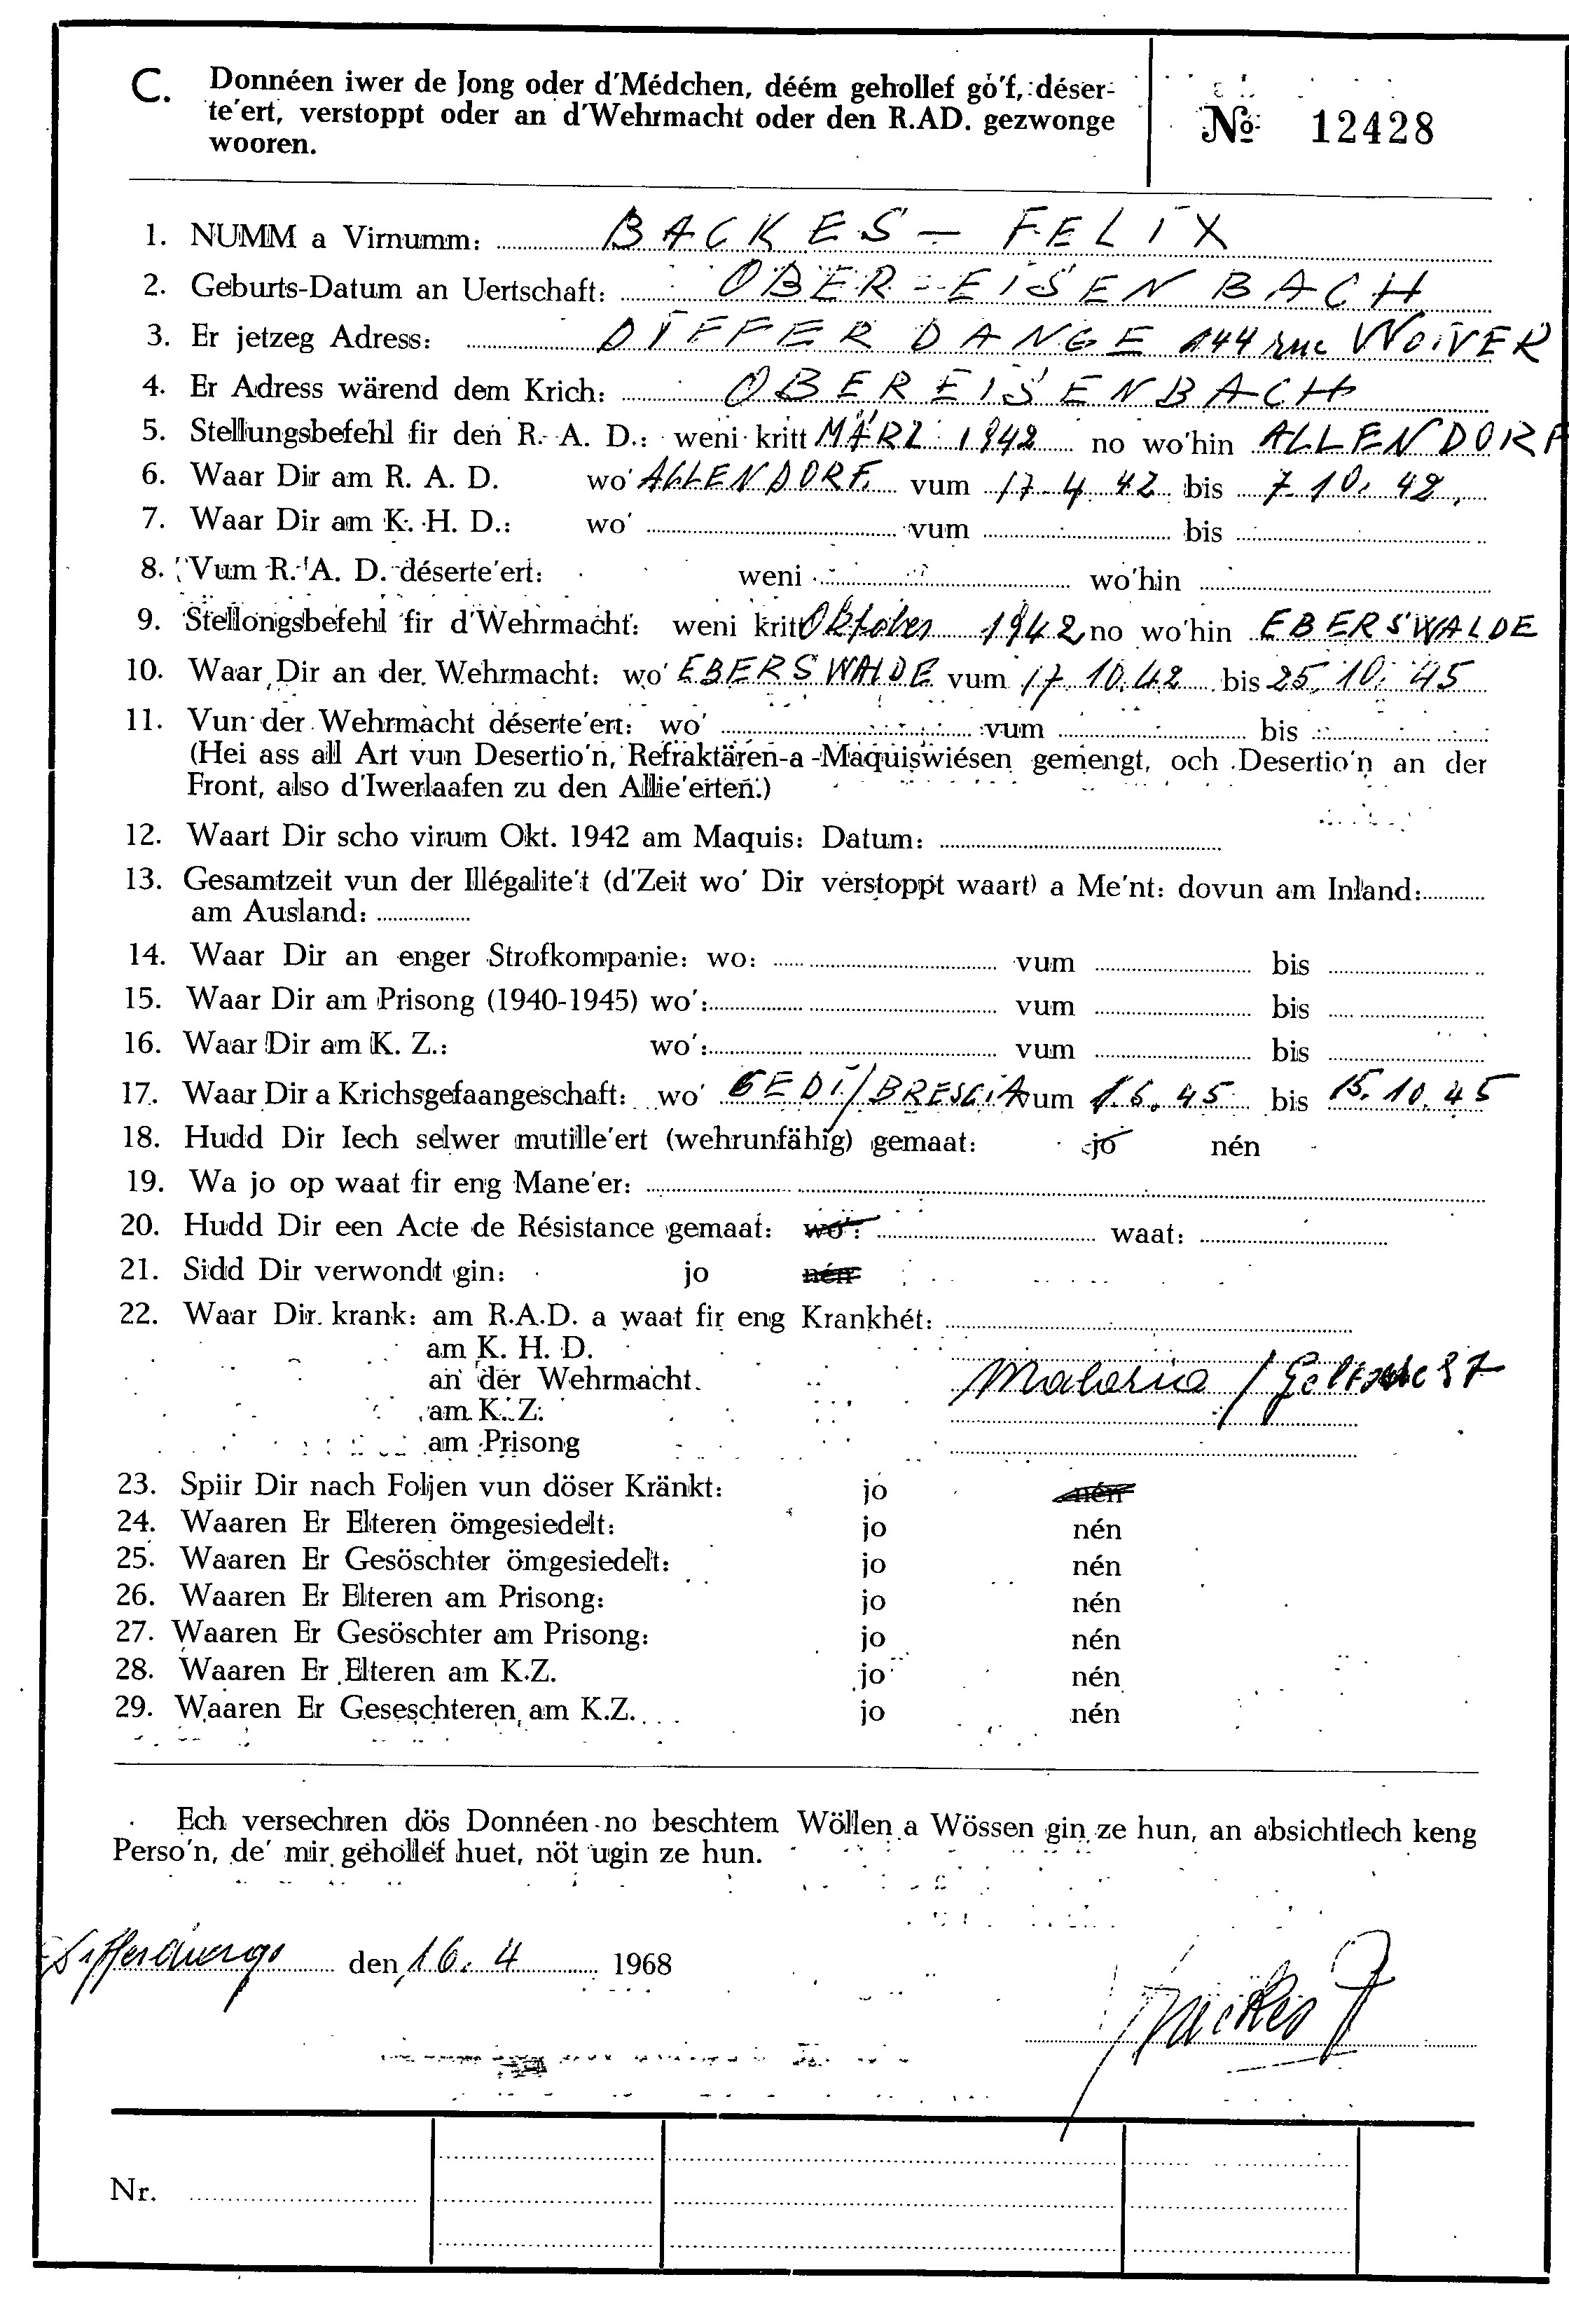 C. Donnéen iwer de Jong oder d'Médchen, déém gehollef gò'f, déser-
te'ert, verstoppt oder an d'Wehrmacht oder den R.AD. gezwonge
wooren.
No 12428
1. NUMM a Virnumm: BACKES - FELIX
2. Geburts-Datum an Uertschaft: OBER-EISENBACH
3. Er jetzeg Adress: DIFFERDANGE 144 rue WOIVER
4. Er Adress wärend dem Krich: OBEREISENBACH
5. Stellungsbefehl fir den R. A. D.: weni kritt MÄRZ 1942 no wo'hin ALLENDORF
6. Waar Dir am R. A. D. wo' ALLENDORF. vum 17.4.42 bis 7.10.42.
7. Waar Dir am K. H. D.: wo' vum bis
8. Vum R. A. D. déserte'ert: weni wo'hin
9. Stellongsbefehl fir d'Wehrmacht: weni kritt Oktober 1942 no wo'hin EBERSWALDE
10. Waar Dir an der Wehrmacht: wo' EBERSWALDE vum 17.10.42 bis 25.10.45
11. Vun der Wehrmacht déserte'ert: wo' vum bis
(Hei ass all Art vun Desertio'n, Refraktären-a -Maquiswiésen gemengt, och Desertio'n an der
Front, also d'Iwerlaafen zu den Allie'erten.)
12. Waart Dir scho virum Okt. 1942 am Maquis: Datum:
13. Gesamtzeit vun der Illégalite't (d'Zeit wo' Dir verstoppt waart) a Me'nt: dovun am Inland:
am Ausland:
14. Waar Dir an enger Strofkompanie: wo: vum bis
15. Waar Dir am Prisong (1940-1945) wo': vum bis
16. Waar Dir am K. Z.: wo': vum bis
17. Waar Dir a Krichsgefaangeschaft: wo' GEDI/BRESCIA vum 1.6.45 bis 15.10.45
18. Hudd Dir Iech selwer mutille'ert (wehrunfähig) gemaat: jo nén
19. Wa jo op waat fir eng Mane'er:
20. Hudd Dir een Acte de Résistance gemaat: wo': waat:
21. Sidd Dir verwondt gin: jo nén
22. Waar Dir krank: am R.A.D. a waat fir eng Krankhét:
am K. H. D.
an der Wehrmacht. Malaria /
am K. Z.
am Prisong
23. Spiir Dir nach Foljen vun döser Kränkt: jo nén
24. Waaren Er Elteren ömgesiedelt: jo nén
25. Waaren Er Gesöschter ömgesiedelt: jo nén
26. Waaren Er Elteren am Prisong: jo nén
27. Waaren Er Gesöschter am Prisong: jo nén
28. Waaren Er Elteren am K.Z. jo nén
29. Waaren Er Geseschteren am K.Z. jo nén
Ech versechren dös Donnéen no beschtem Wöllen a Wössen gin ze hun, an absichtlech keng
Perso'n, de' mir gehollef huet, nöt ugin ze hun.
den 16.4 1968
Backes F
Nr.